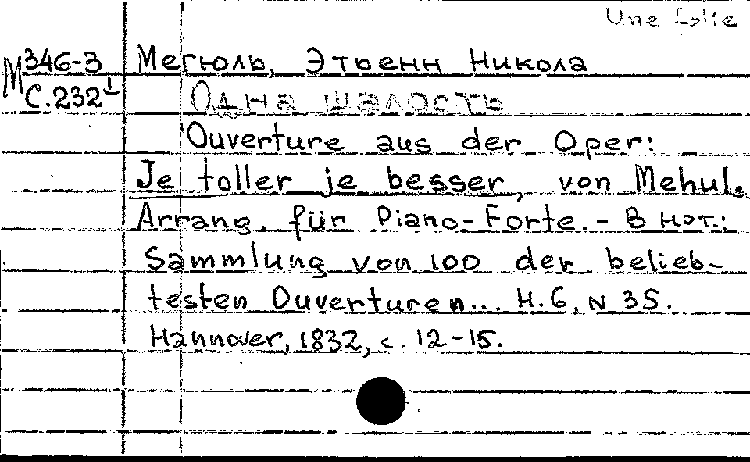 Une folie
М 346-3 Мегюль, Этьенн Никола
С.232¹ Одна шалость
Ouverture aus der Oper:
Je toller je besser, von Mehul.
Arrang. für Piano-Forte. - В нот.:
Sammlung von 100 der belieb-
testen Ouverturen... H.6, N 35.
Hannover, 1832, с. 12-15.